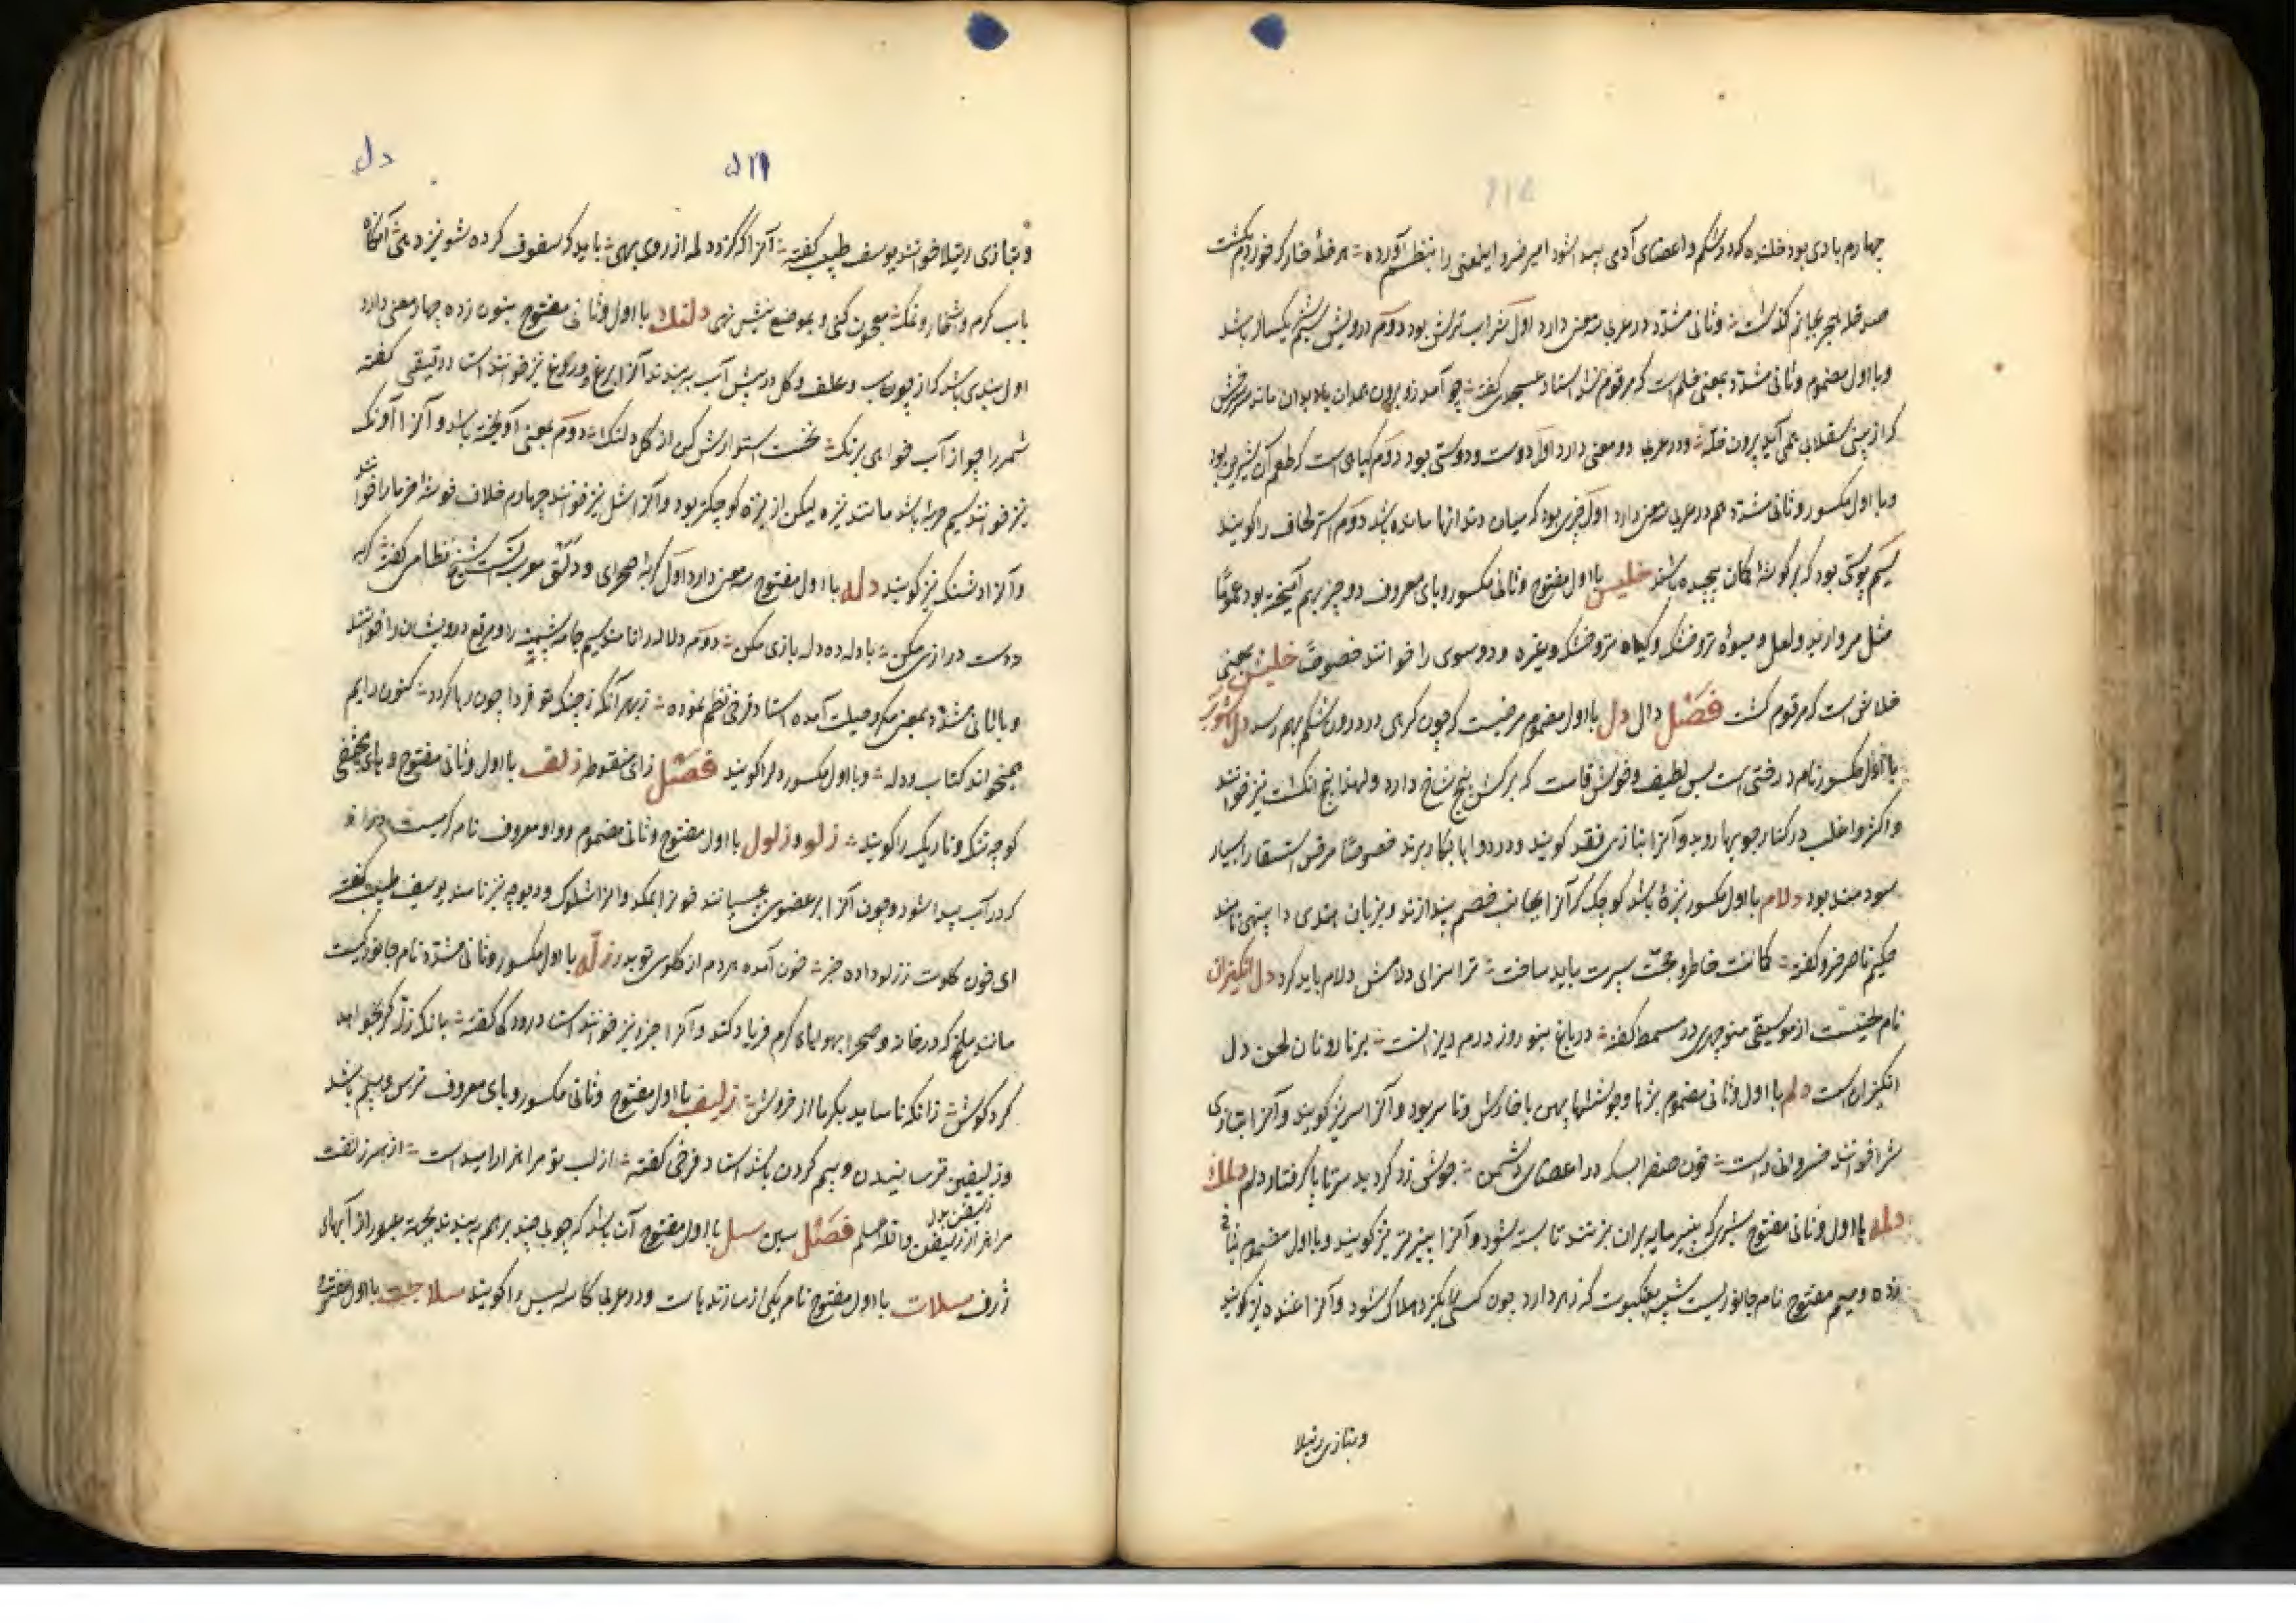 چهارم بادی بود خلنده که در شکم و اعضای آدمی پیدا شود امیر خسرو این معنی را بنظم آورده هر خلهٔ خار که خورد بگشت
صد خله بحر بجانم گذشت و ثانی مشدد در عربی سه معنی دارد اول شراب ترش بود دوم درویشی سیم یکسان باشد
و با اول مضموم و ثانی مشدد بمعنی خلم است که مرقوم شد استاد عسجدی گفته چو آمد زو برون حمدان
که از بینی سقلابی همی آید برون خله و در عربی دو معنی دارد اول دوست و دوستی بود دوم گیاهی است که طعم آن شیرین بود
و با اول مکسور و ثانی مشدد هم در عربی سه معنی دارد اول چیزی بود که میان دندانها مانده باشد دوم استر لحاف را گویند
سیم پوستی بود که بر گوشهٔ کمان پیچیده باشند خلیس با اول مفتوح و ثانی مکسور و یای معروف دو چیز بهم آمیخته بود عموما
مثل مروارید و لعل و میوهٔ تر و خشک و گیاه تر و خشک و غیره و دو موی را خوانند خصوصا خلیش بمعنی
خلاش است که مرقوم گشت فصل دال دل با اول مضموم مرضیست که چون گرهی در درون شکم بهم رسد دل آشوب
با اول مکسور نام درختی است بس لطیف و خوش قامت که برگش پنج شاخ دارد و لهذا پنج انگشت نیز خوانند
و اکثر و اغلب در کنار جویها روید و آنرا بتازی فقد گویند و در دواها بکار برند خصوصا مرض استسقا را بسیار
سودمند بود دلام با اول مکسور نیزهٔ باشد کوچک که آنرا بجانب خصم بیندازند و بزبان هندی نامند
حکیم ناصر خسرو گفته خاطر و حجت سپرت باید ساخت ترا سزای دلامش دلام باید کرد دل انگیزان
نام لحنیست از موسیقی منوچهری در مسمط گفته در باغ بنوروز درم ریزانست بر نارونان لحن دل
انگیزان است دلم با اول و ثانی مضموم و آنرا سریز گویند و آنرا بتازی
شرا خوانند خسروانی راست خون صفرا در اعضای دشمن جوشی زد گردید سر تا پا گرفتار دلم دلمک
دلمه با اول و ثانی مفتوح شیری که پنیر مایه بران بزنند تا بسته شود و آنرا پنیر تر نیز گویند و با اول مضموم بثانی
زده و میم مفتوح نام جانوریست شبیه بعنکبوت که زهر دارد چون کسی را بگزد هلاک شود و آنرا غنده نیز گویند
و بتازی رتیلا
۵۲۱
دل
و بتازی رتیلا خوانند یوسف طبیب گفته آنرا که گزد دلمه از روی بهی باید که سفوف کرده شونیز دهی آنگاه
باب گرم و شخار و نمک معجون کنی و بموضع نیش نهی دلنک با اول و ثانی مفتوح بنون زده چهار معنی دارد
اول بندی باشد که از چوب و علف و گل در پیش آب ببندند آنرا برغ و ورغ نیز خوانند استاد دقیقی گفته
شمر را چو از آب خواهی بزنک نخست استوارش کن از گل دلنک دوم بمعنی آویخته باشد و آنرا آونک
نیز خوانند سیم حربهٔ باشد مانند نیزه لیکن از نیزه کوچکتر بود و آنرا شل نیز خوانند چهارم غلاف خوشهٔ خرما را خوانند
و آنرا دشنک نیز گویند دله با اول مفتوح سه معنی دارد اول گربهٔ صحرای و دلق معرب آنست شیخ نظامی گفته گربه
دوست درازی مکن با دله ده دله بازی مکن دوم دلاله را نامند سیم جامهٔ پشمینه را و مرقع درویشان را خوانند
و با ثانی مشدد بمعنی مکر و حیلت آمده استاد فرخی نظم نموده ز بهر آنکه ز چنک تو فردا چون رها گردد کنون دایم
همیخواند کتاب و دله و با اول مکسور دل را گویند فصل زای منقوطه زلف با اول و ثانی مفتوح و های مختفی
کوچه تنک و تاریک را گویند زلو و زلول با اول مفتوح و ثانی مضموم و واو معروف نام کرمیست دراز
که در آب پیدا شود و چون آنرا بر عضوی بچسپانند خونرا بمکد و آنرا شلوک و دیوچه نیز نامند یوسف طبیب گفته
ای خون گلوت زلو داده خبر خون آمده هر دم از گلوی تو بدر زله با اول مکسور و ثانی مشدد نام جانوریست
مانند ملخ که در خانه و صحرا بهوای گرم فریاد کند و آنرا جزد نیز خوانند استاد رودکی گفته بانک زله کر بخواهد
کرد گوش زانکه ناساید بگرما از خروش زلیف با اول مفتوح و ثانی مکسور و یای معروف ترس و بیم باشد
و زلیفین ترسانیدن و بیم کردن باشد استاد فرخی گفته از لب تو مرا هزار امید است از سر زلفت
مرا هزار زلیفن فصل سین سل با اول مفتوح آن باشد که چوبی چند بر هم ببندند بجهت عبور از آبهای
ژرف سلات با اول مفتوح نام یکی از سازندهاست و در عربی کاسه لیس را گویند سلاجت با اول مفتوح